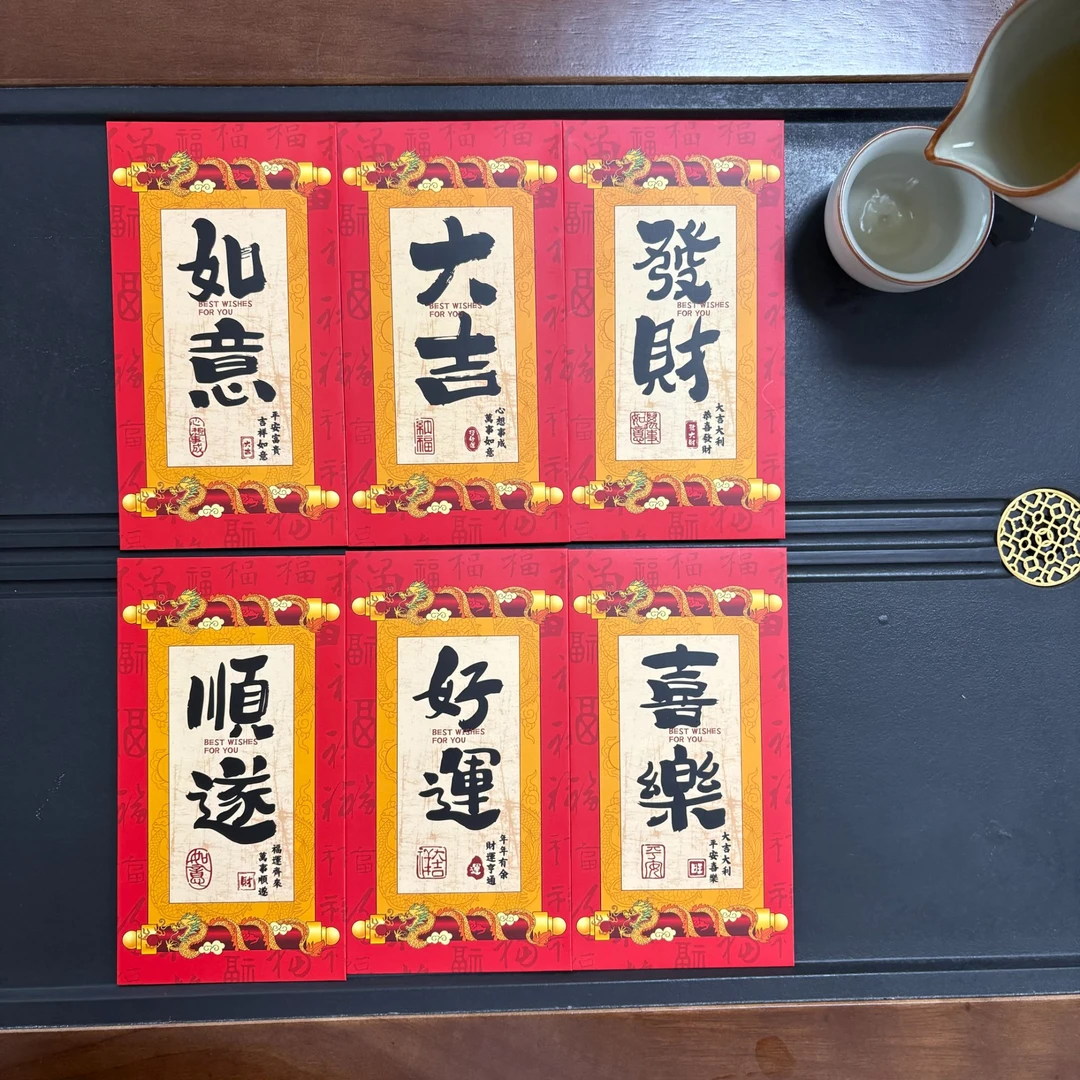 如
BEST WISHES
FOR YOU
意
平安富貴
吉祥如意
大吉
心想事成
大
BEST WISHES
FOR YOU
吉
心想事成
萬事如意
發
BEST WISHES
FOR YOU
財
大吉大利
恭喜發財
發大財
順
BEST WISHES
FOR YOU
遂
福運齊來
萬事順遂
財
如意
好
BEST WISHES
FOR YOU
運
年年有余
財運亨通
運
喜
BEST WISHES
FOR YOU
樂
大吉大利
平安喜樂
平安